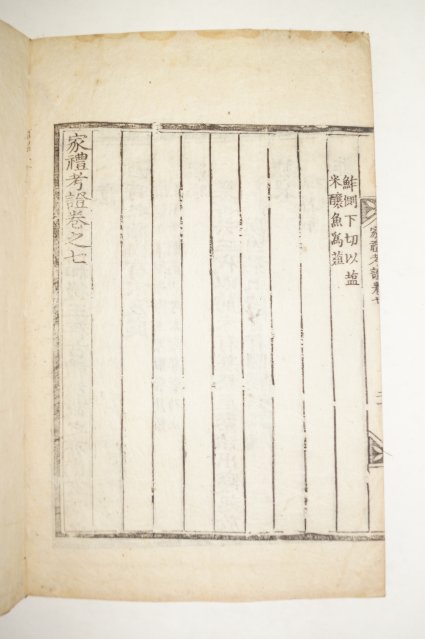 鮓側下切以盐
米釀魚爲葅
家禮考證卷七
家禮考證卷之七